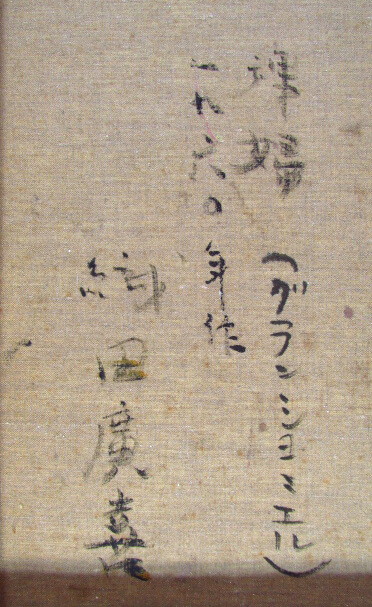 裸婦
(グランショミエル)
一九六〇年作
織田廣喜